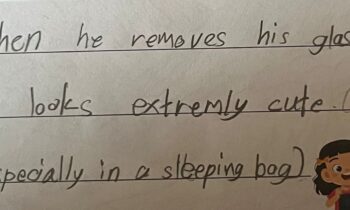 hen he removes his glas
looks extremly cute.(
specially in a sleeping bag)